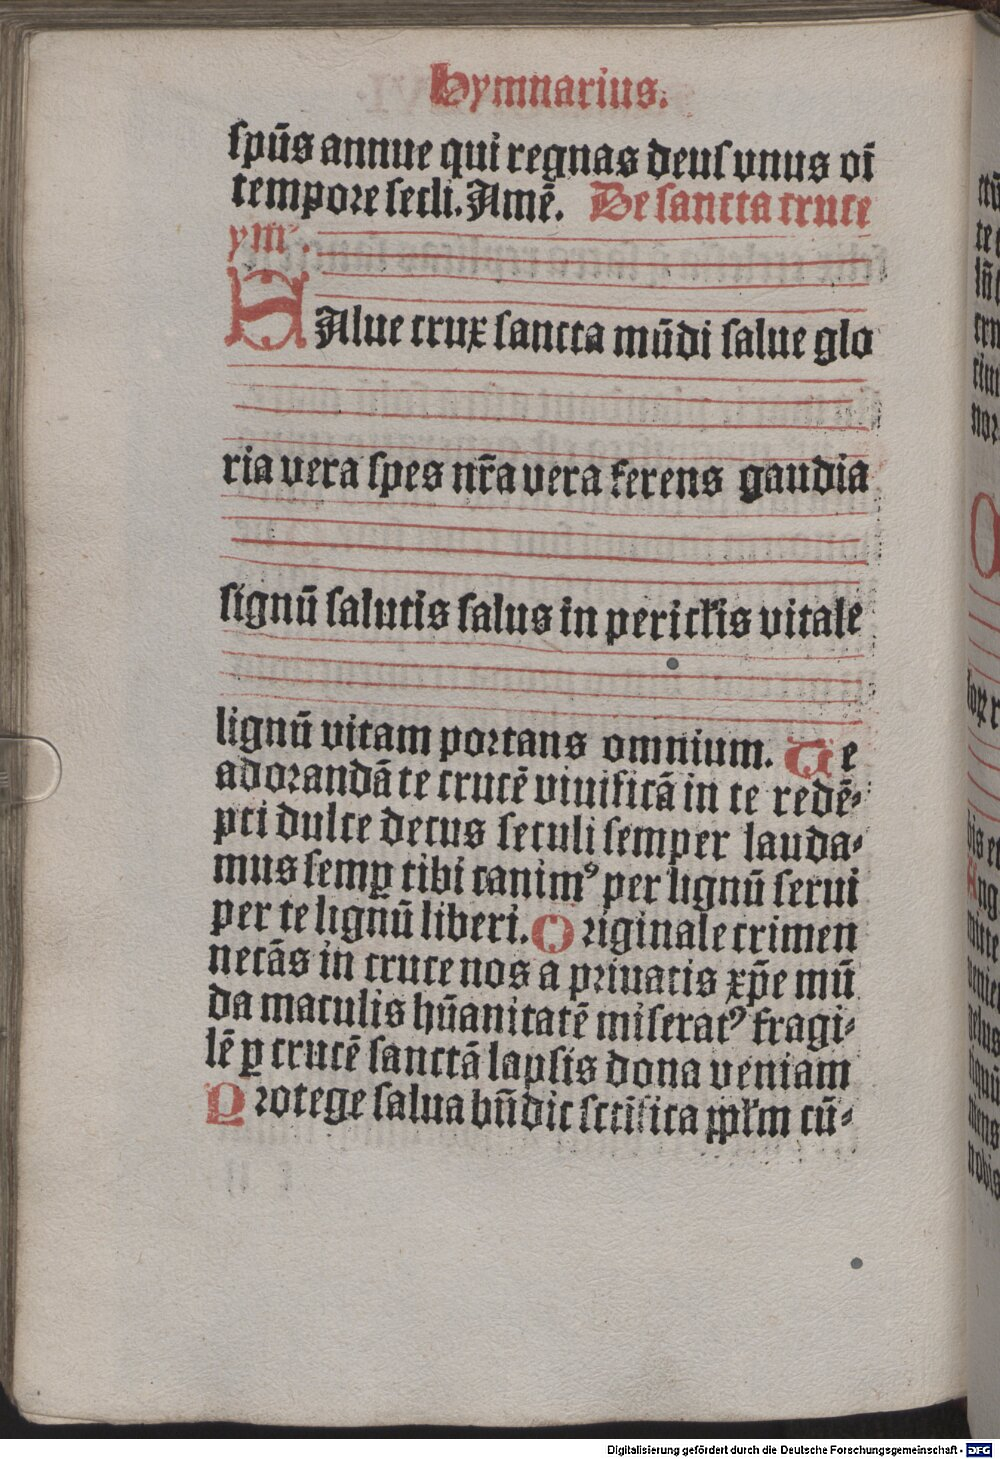 Hymnarius.
spūs annue qui regnas deus vnus oī
tempore secli. Amē. De sancta cruce
ym᷒.
SAlue crux sancta mūdi salue glo
ria vera spes nr̄a vera ferens gaudia
signū salutis salus in pericl̄is vitale
lignū vitam portans omnium. Te
adorandā te crucē viuificā in te redē⸗
pti dulce decus seculi semper lauda⸗
mus semꝑ tibi canimꝰ per lignū serui
per te lignū liberi. Originale crimen
necās in cruce nos a priuatis xp̄e mū
da maculis hūanitatē miseratꝰ fragi⸗
lē ꝑ crucē sanctā lapsis dona veniam
Protege salua bn̄dic sctifica ppl̄m cū⸗
Digitalisierung gefördert durch die Deutsche Forschungsgemeinschaft - DFG